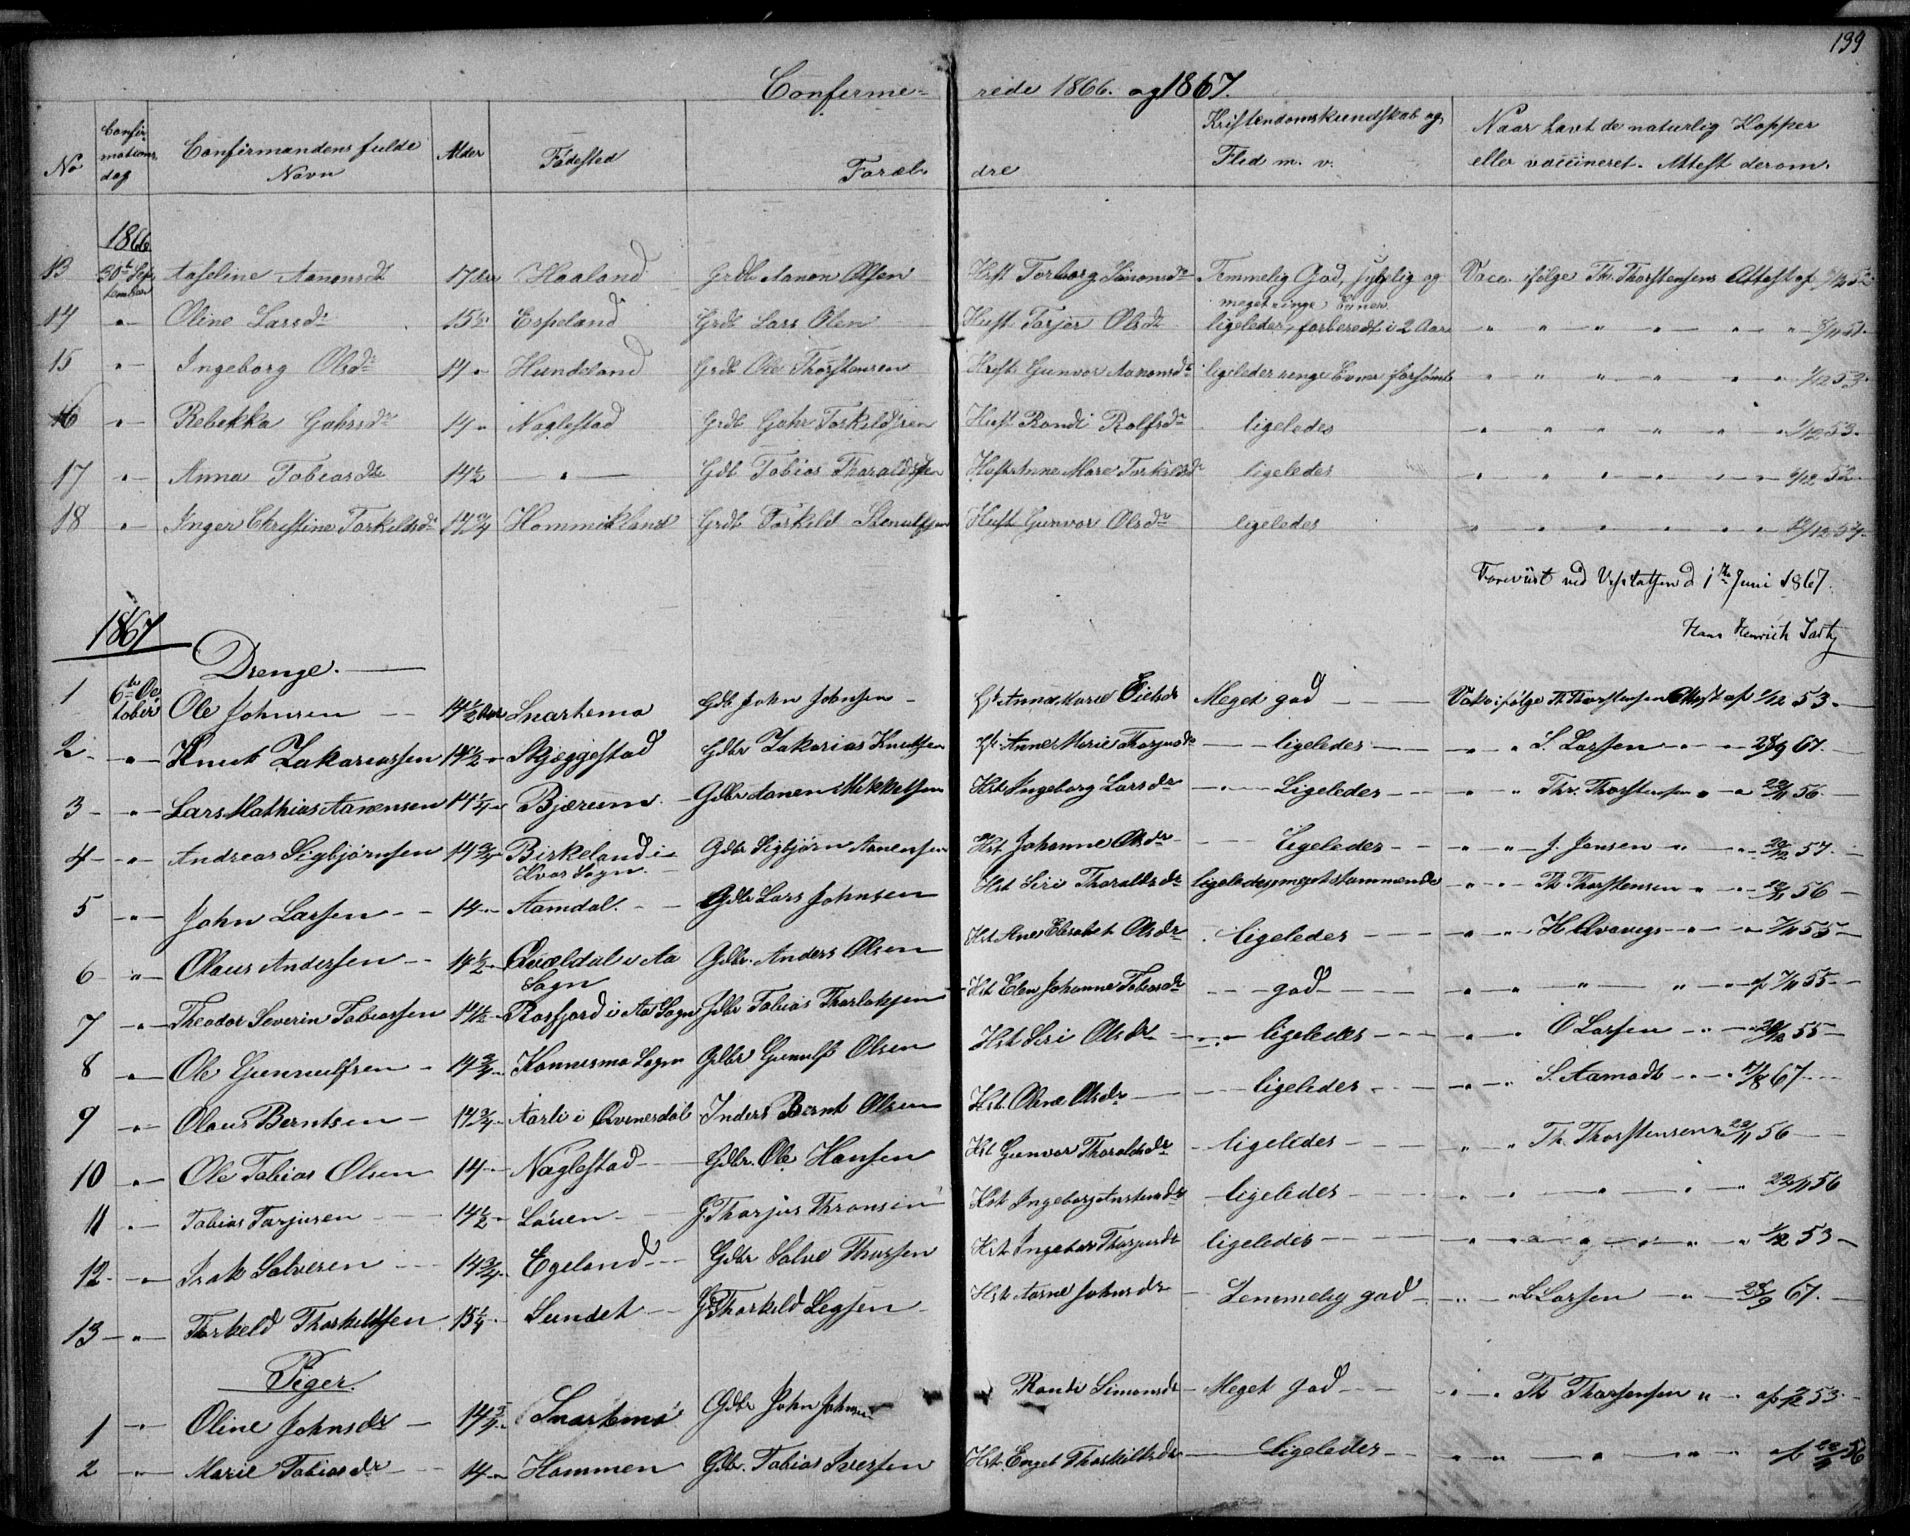 199
Confirme- rede 1866. og 1867.
No Confir-mations dag Confirmandens fulde Navn Alder Fødested Foræl- dre Kristendomskundskab og Flid m. v. Naar havt de naturlig Kopper eller vaccineret. Attest derom.
1866
13 30te September Aaseline Aanonsdt 17 Aar Haaland Grdb Aanon Olsen Hust Torborg Simonsdt Temmelig God, sygelig og meget ringe Evner Vacc. ifølge Th. Thorstensens Attest af
14 " Oline Larsdr 15½ Espeland Grdb Lars Olsen Hust Torjer Olsdr ligeledes, forberedt i 2 Aar " " " " " "
15 " Ingeborg Olsdr 14 " Hundeland Grdb Ole Thorstensen Hust Gunvor Aanonsdr ligeledes ringe Evner forsømt " " " " " " 1/12 53.
16 " Rebekka Gahrsdr 14 " Naglestad Grdb Gahr Torkildsen Hust Randi Rolfsdr ligeledes " " " " " " 1/12 53.
17 " Anna Tobiasdtr 14½ " Gdb Tobias Tharaldsen Hust Anne Marie Torkildsdr ligeledes " " " " " "
18 " Inger Christine Torkildsdr 14¾ Hommikland Grdb Torkild Stenulfsen Hust Gunvor Olsdr ligeledes " " " " " "
Foreviist ved Visitatsen d 1ste Juni 1867.
Hans Henrich
1867
Drenge.
1 6te October Ole Johnsen 14½ Aar Snartemo Gdb John Johnsen Hst Anna Marie Eielsdr Meget god Vakc. ifølge Th Thorstensens Attest af 1/12 53.
2 " Knut Zakariassen 14½ " Skjeggestad Gdbr Zakarias Knutsen Hst Anne Marie Thorjusdr ligeledes " " S. Larsen " " 28/9 67.
3 " Lars Mathias Aanensen 14¼ " Bjærum Gdbr Aanen Mikkelsen Hst Ingeborg Larsdr Ligeledes " " Thr. Thorstensen " " 22/11 56.
4 " Andreas Sigbjørnsen 14¾ " Birkeland i Kvas Sogn. Gdbr Sigbjørn Aanensen Hst Johanne Olsdr Ligeledes " " J. Jensen " " 57.
5 " John Larsen 14 " Aamdal. Gdbr Lars Johnsen Hst Siri Tharaldsdr ligeledes, meget stammende " " Th Thorstensen " " 56
6 " Olaus Andersen 14½ " Qvældal i Aa Sogn Gdbr. Anders Olsen Hst Ane Elisabet Olsdr ligeledes " " H " " 7/11 55
7 " Theodor Severin Tobiassen 14½ " Rosfjord i Aa Sogn Gdbr Tobias Thorlaksen Hst Elen Johanne Tobiasdr god " " " " " af 7/11 55
8 " Ole Gunnulfsen 14¾ " Konnesmo Sogn Gdbr Gunulf Olsen Hst Siri Olsdr ligeledes " " O Larsen " " 55
9 " Olaus Berntsen 14¾ " Aarli i Qvinesdal Inders Bernt Olsen Hst. Oline Olsdr ligeledes " " S. Aamodt " " 67
10 " Ole Tobias Olsen 14 " Naglestad Gdbr. Ole Hansen Hst Gunvor Tharaldsdr ligeledes " " Th. Thorstensen " 22/11 56
11 " Tobias Torjusen 14½ " Løuen G Thorjus Thronsen Hst Ingeborg Austensdr ligeledes " " " " " 22/11 56
12 " Isak Salvesen 14¾ " Egeland Gdbr Salve Thorsen Hst Ingebor Thorjusdr ligeledes " " " " " 1/12 53
13 " Torkeld Thorkildsen 15¼ " Lundet Gdb Thorkild Legsen Hst Aasne Johnsdr Temmelig god " " L Larsen " 28/9 67.
Piger.
1 " Oline Johnsdr 14¾ " Snartemo Gdbr John Johnsen Randi Simonsdr Meget God " " Th Thorstensen " " af 53.
2 " Marie Tobiasdr 14 " Hommen Gdbr. Tobias Iversen Hst. Engel Thorkildsdr Ligeledes " " " " af 56